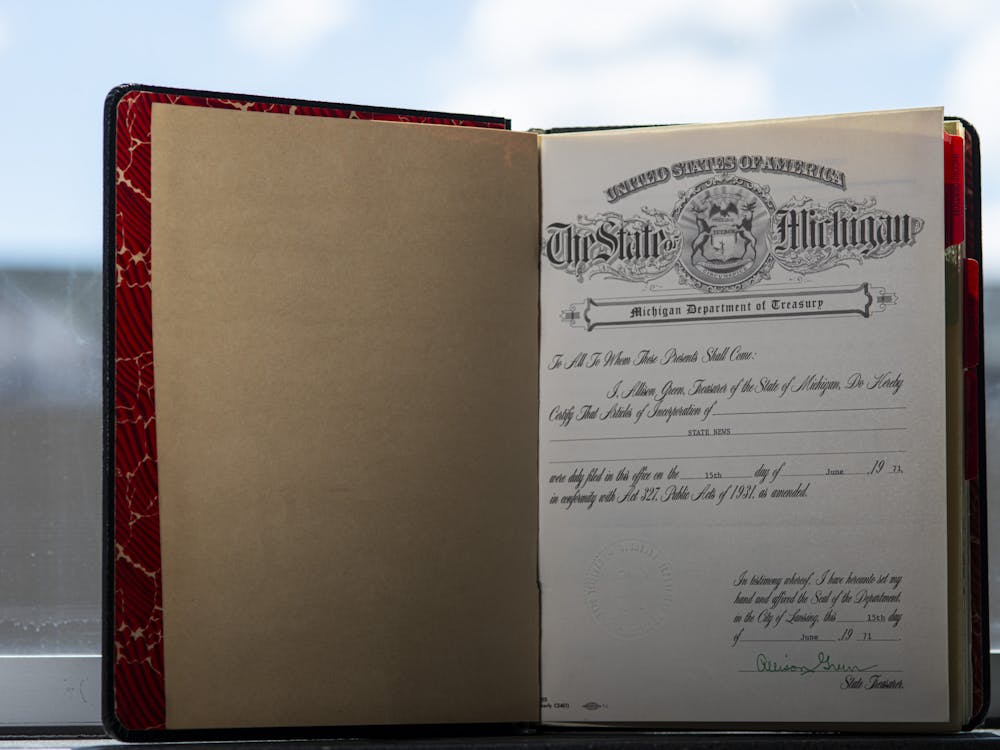 UNITED STATES OF AMERICA
The State of Michigan
TUEBOR
CIRCUMSPICE
Michigan Department of Treasury
To All To Whom These Presents Shall Come:
I, Allison Green, Treasurer of the State of Michigan, Do Hereby
Certify That Articles of Incorporation of
STATE NEWS
were duly filed in this office on the 15th day of June , 19 71,
in conformity with Act 327, Public Acts of 1931, as amended.
In testimony whereof, I have hereunto set my
hand and affixed the Seal of the Department,
in the City of Lansing, this 15th day
of June , 19 71 .
Allison Green
State Treasurer.